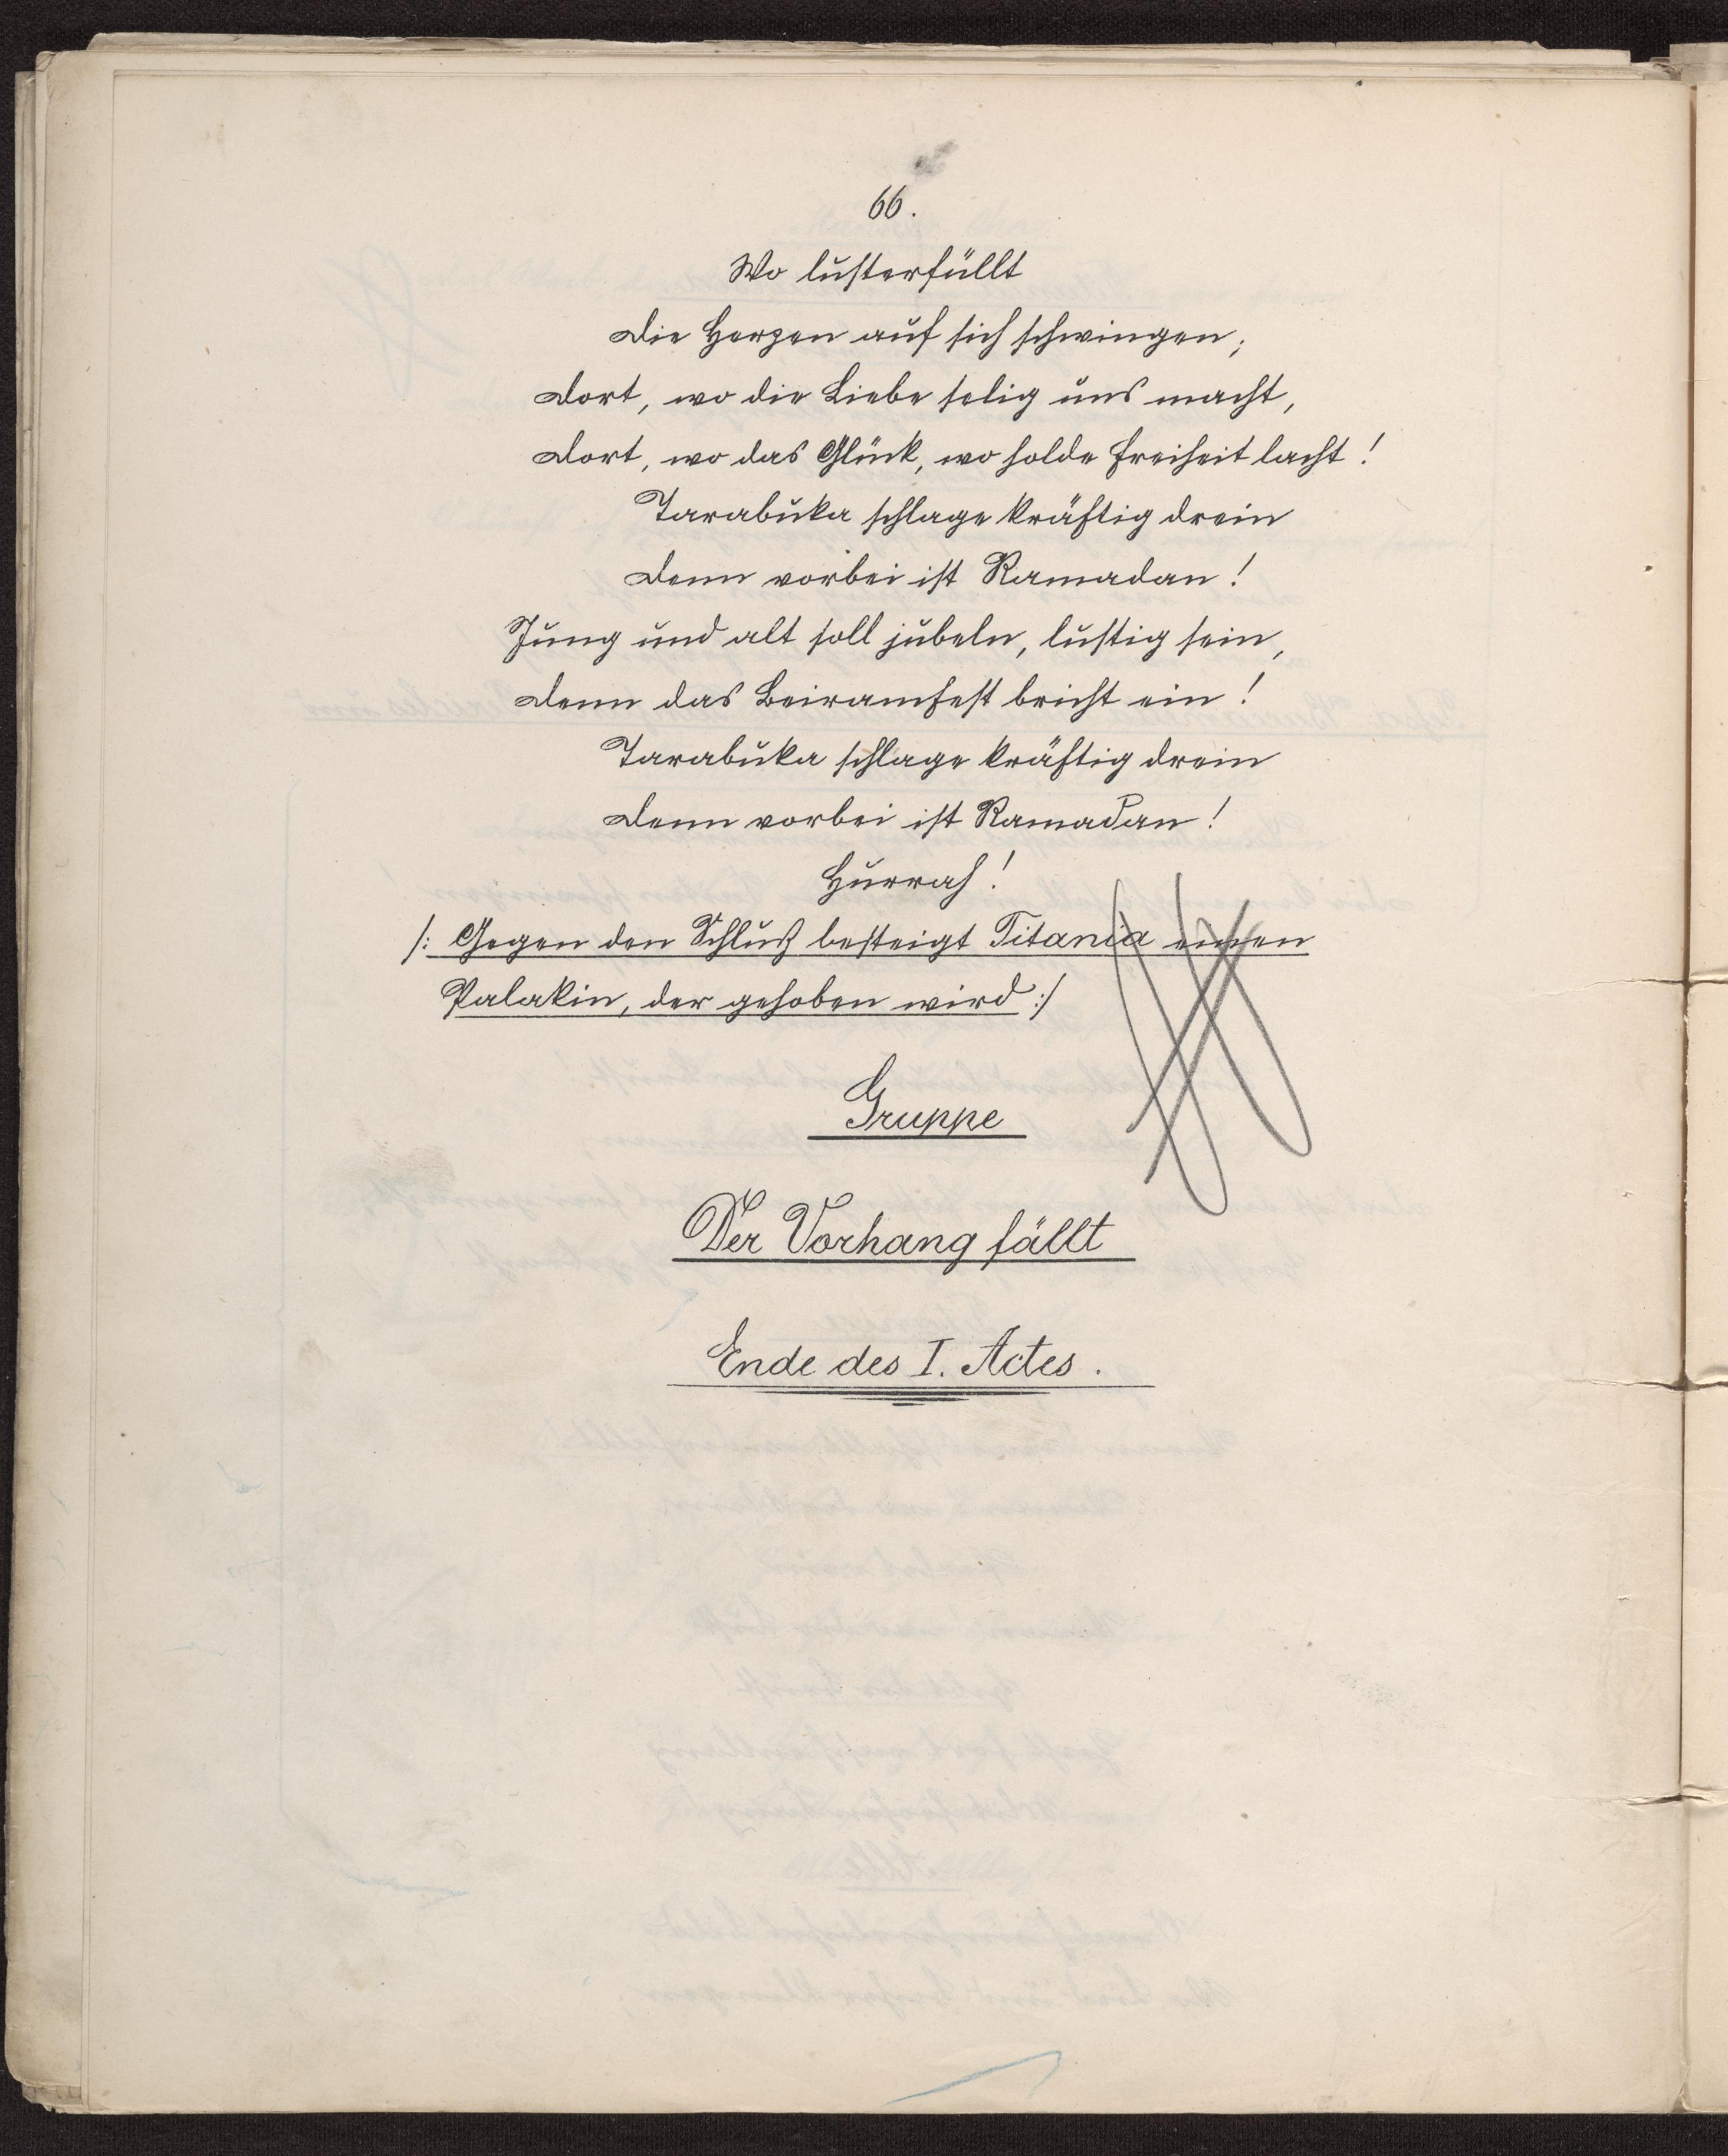 66.
Wo lusterfüllt
Die Herzen auf sich schwingen;
Dort, wo die Liebe selig uns macht,
Dort, wo das Glück, wo holde Freiheit lacht!
Tarabuka schlage kräftig drein
Denn vorbei ist Ramadan!
Jung und alt soll jubeln, lustig sein,
Denn das Beiramfest bricht ein!
Tarabuka schlage kräftig drein
Denn vorbei ist Ramadan!
Hurrah!
/: Gegen den Schluß besteigt Titania einen
Palakin, der gehoben wird :/
Gruppe
Der Vorhang fällt
Ende des I. Actes.